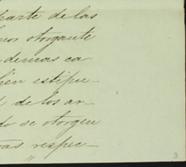 parte de las
nor otorgante
demas ca
bien estipu-
de los ar-
do se otorgen
ras respec-